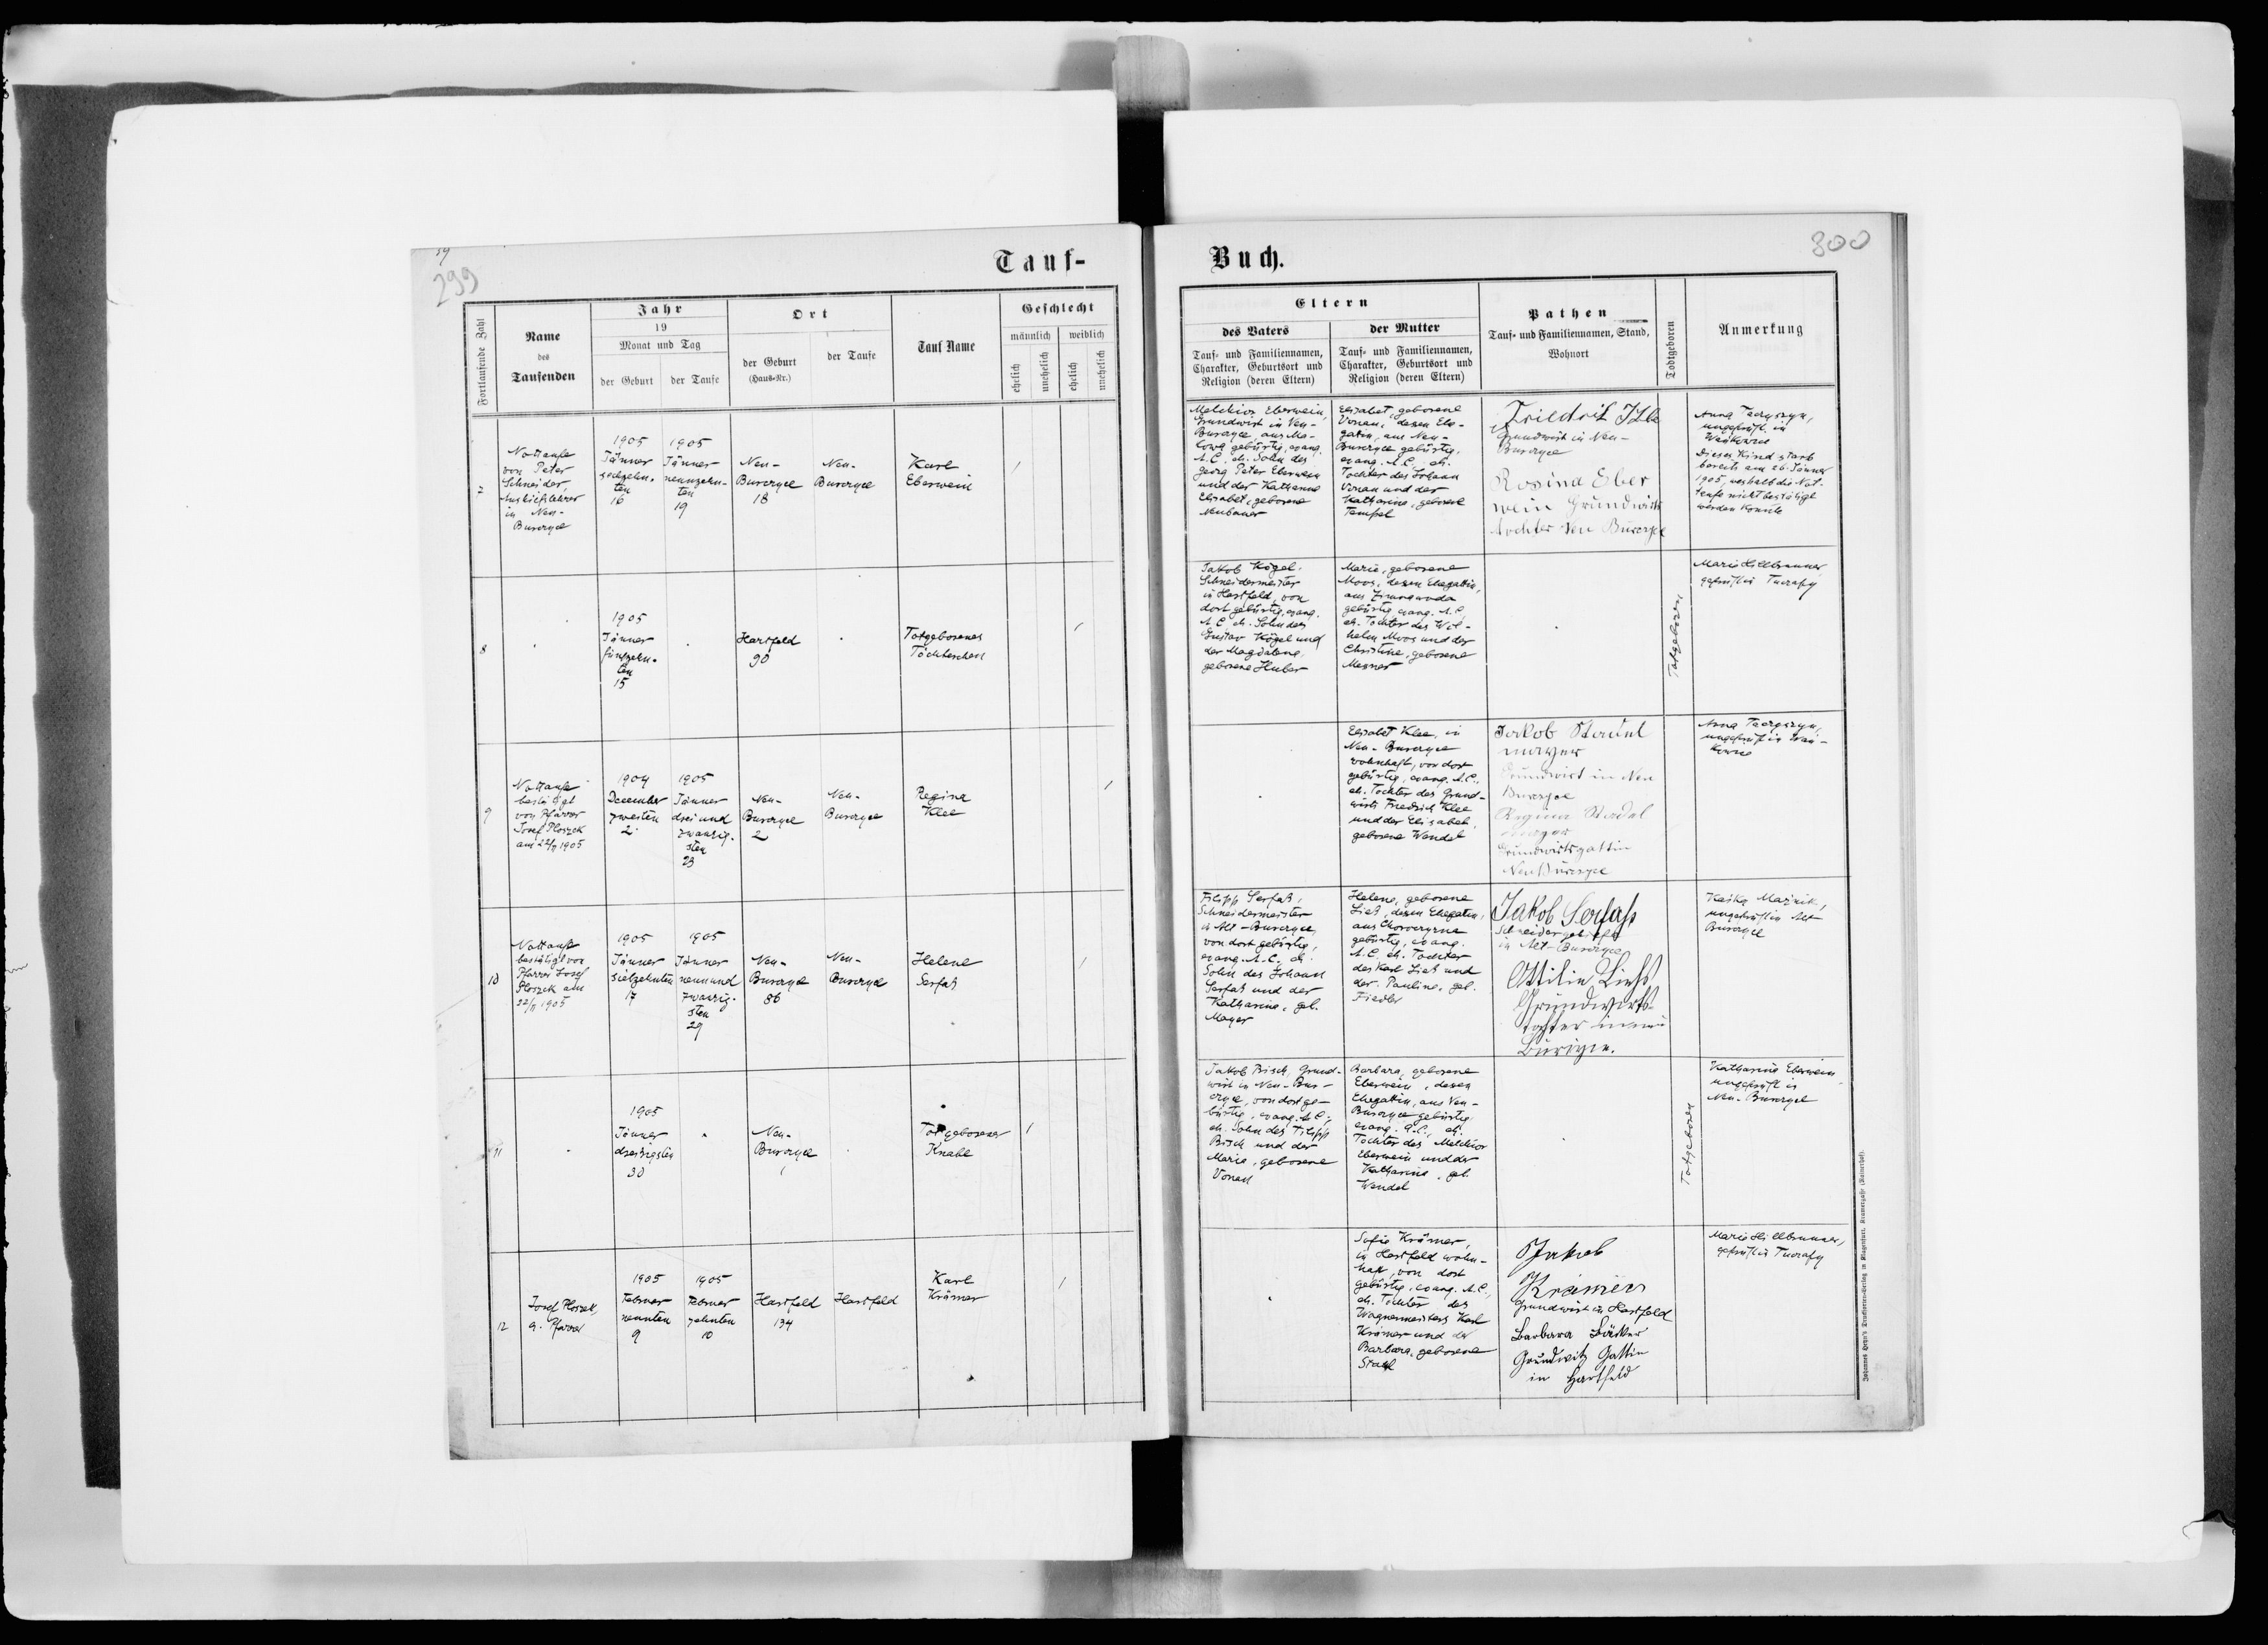 299
Tauf-
Fortlaufende Zahl
Name
des
Taufenden
Jahr
19
Monat und Tag
der Geburt
der Taufe
Ort
der Geburt
(Haus-Nr.)
der Taufe
Tauf Name
Geschlecht
männlich
weiblich
ehelich
unehelich
ehelich
unehelich
7
Nottaufe
von Peter
Schneider,
Aushilfslehrer
in Neu-
Burczyce
1905
Jänner
sechzehn-
ten
16
1905
Jänner
neunzehn-
ten
19
Neu-
Burczyce
18
Neu-
Burczyce
Karl
Eberwein
8
1905
Jänner
fünfzehn-
ten
15
Hartfeld
90
Totgeborenes
Töchterchen
9
Nottaufe
bestätigt
von Pfarrer
Josef Ploszek
am 22/II 1905
1904
December
zweiten
2
1905
Jänner
drei und
zwanzig-
sten
23
Neu-
Burczyce
2
Neu-
Burczyce
Regina
Klee
10
Nottaufe
bestätigt von
Pfarrer Josef
Ploszek am
22/II 1905
1905
Jänner
siebzehnten
17
1905
Jänner
neunund
zwanzig-
sten
29
Neu-
Burczyce
86
Neu-
Burczyce
Helene
Serfaß
11
1905
Jänner
dreißigsten
30
Neu-
Burczyce
Totgeborener
Knabe
12
Josef Ploszek,
ev. Pfarrer
1905
Februar
neunten
9
1905
Februar
zehnten
10
Hartfeld
134
Hartfeld
Karl
Krämer
Buch.
300
Eltern
des Vaters
Tauf- und Familiennamen,
Charakter, Geburtsort und
Religion (deren Eltern)
der Mutter
Tauf- und Familiennamen,
Charakter, Geburtsort und
Religion (deren Eltern)
Pathen
Tauf- und Familiennamen, Stand,
Wohnort
Todtgeboren
Anmerkung
Melchior Eberwein,
Grundwirt in Neu-
Burczyce, aus
gebürtig, evang.
A.C., eh. Sohn des
Georg Peter Eberwein
und der Katharina
Elisabet, geborene
Neubauer
Elisabet, geborene
Vonau, deren Ehe-
gattin, aus Neu-
Burczyce gebürtig,
evang. A.C., eh.
Tochter des Johann
Vonau und der
Katharina, geborene
Tempel
Friedrich
Grundwirt in Neu-
Burczyce
Rosina Eber
wein Grundwirts
tochter Neu Burczyce
Anna
ungeprüft in
Dieses Kind starb
bereits am 26. Jänner
1905, weshalb die Not-
taufe nicht bestätigt
werden konnte
Jakob Kögel,
Schneidermeister
in Hartfeld, von
dort gebürtig, evang.
A.C., eh. Sohn des
Gustav Kögel und
der Magdalena,
geborene Huber
Maria, geborene
Moos, dessen Ehegattin,
aus
gebürtig evang. A.C.,
eh. Tochter des Wil-
helm Moos und der
Christine, geborene
Totgeboren
Maria Hillbrunner
geprüft in
Elisabet Klee, in
Neu-Burczyce
wohnhaft, von dort
gebürtig, evang. A.C.,
eh. Tochter des Grund-
wirts Friedrich Klee
und der Elisabet,
geborene Wendel
Jakob Stadel
mayer
Grundwirt in Neu
Burczyce
Regina Stadel
mayer
Grundwirtsgattin
Neu Burczyce
Anna
ungeprüft in
Filipp Serfaß,
Schneidermeister
in Alt-Burczyce,
von dort gebürtig,
evang. A.C., eh.
Sohn des Johann
Serfaß und der
Katharina, geb.
Mayer
Helene, geborene
Ließ, dessen Ehegattin,
aus
gebürtig, evang.
A.C. eh. Tochter
des Karl Ließ und
der Pauline, geb.
Fiedler
Jakob Serfaß
Schneidergehilfe
in Alt-Burczyce
Ottilie Ließ
Grundwirts-
tochter in neu
Burczyce.
Kaśka
ungeprüft in Alt
Burczyce
Jakob Bisch, Grund-
wirt in Neu-Bur-
czyce, von dort ge-
bürtig, evang. A.C.,
eh. Sohn des Filipp
Bisch und der
Maria, geborene
Vonau
Barbara, geborene
Eberwein, dessen
Ehegattin, aus Neu-
Burczyce gebürtig
evang. A.C., eh.
Tochter des Melchior
Eberwein und der
Katharina, geb.
Wendel
Totgeboren
Katharina Eberwein
ungeprüft in
Neu-Burczyce
Sofie Krämer,
in Hartfeld wohn-
haft, von dort
gebürtig, evang. A.C.,
eh. Tochter des
Wagnermeisters Karl
Krämer und der
Barbara, geborene
Jakob
Krämer
Grundwirt in Hartfeld
Barbara Bäcker
Grundwirts Gattin
in Hartfeld
Maria Hillbrunner,
geprüft in